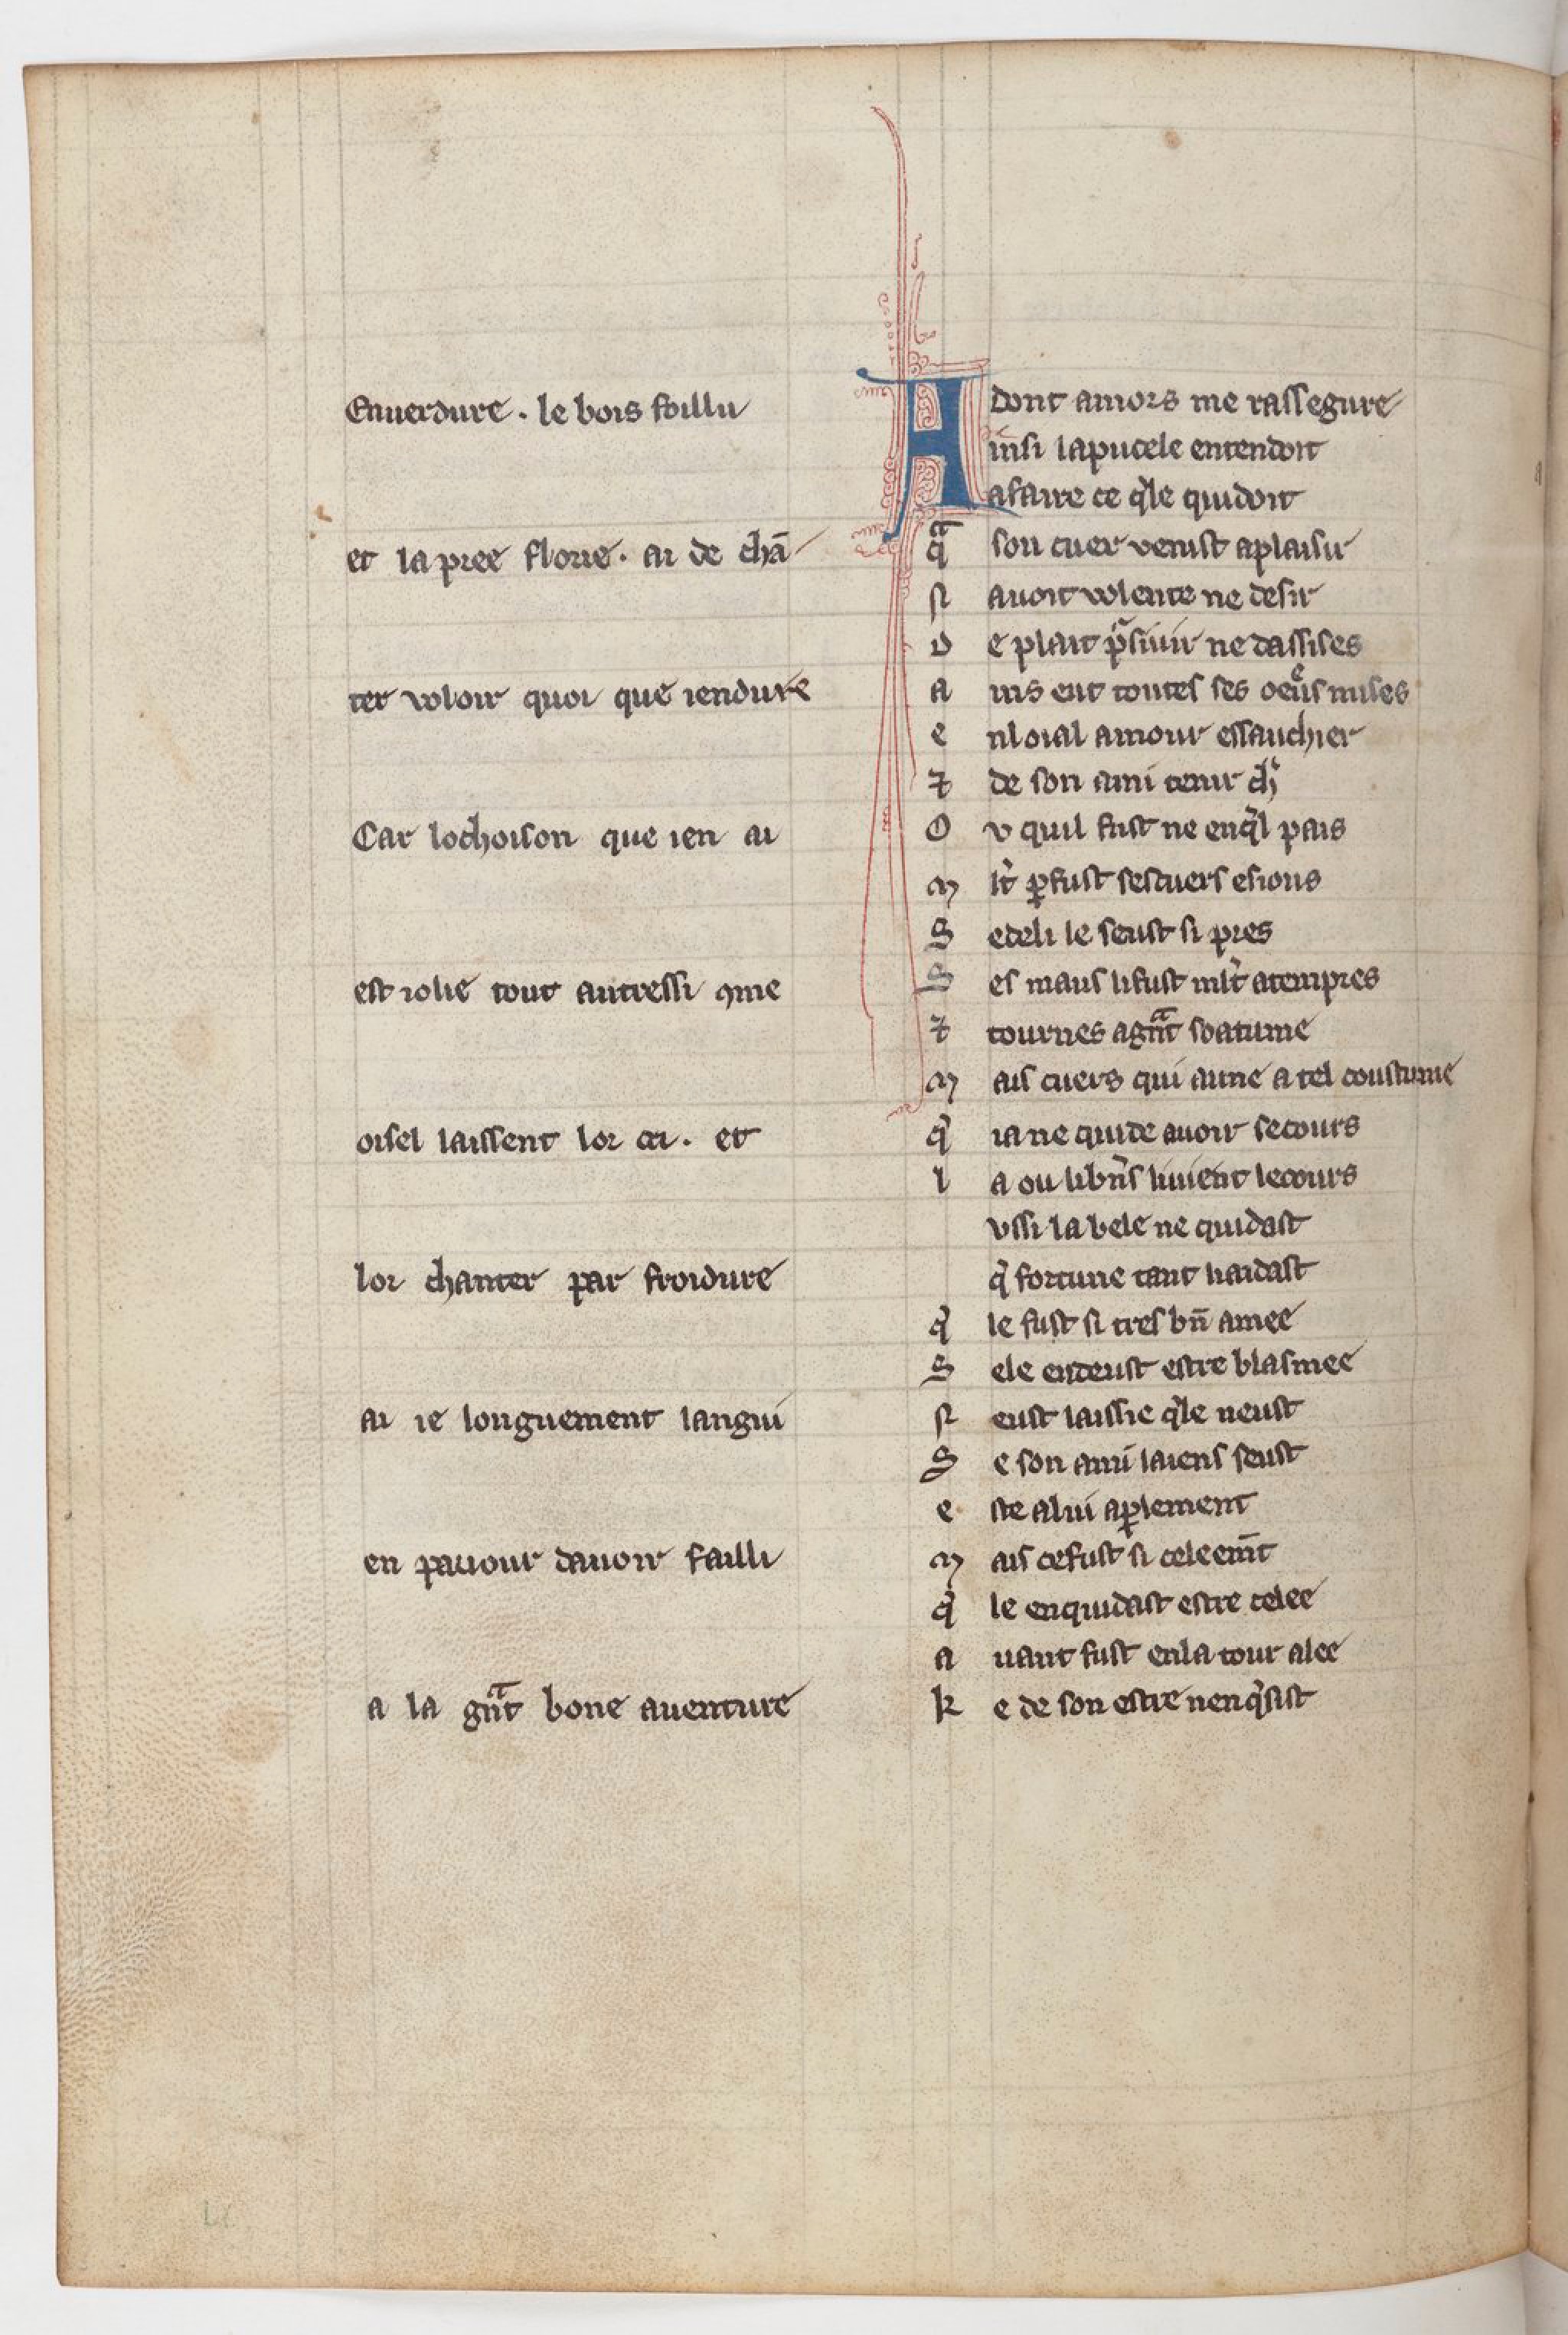 Enuerdure . le bois foillu
et la pree florie . ai de chā
ter voloir quoi que iendure
Car lochoison que ien ai
est iolie tout autressi ꝯme
oisel laissent lor cri . et
lor chanter par froidure
ai ie longuement langui
en paour dauoir failli
a la gͣnt bone auenture
Adont amors me rassegure
insi lapucele entendoit
afaire ce qͥle quidoit
qͣ son cuer venist aplaisir
N auoit volente ne desir
D e plait pͥsiuir ne dassises
A ins eut toutes ses oeuͤs mises
E nloial amour essauchier
⁊ de son ami tenir chͥ
O v quil fust ne enqͥl pais
M lt̉ ꝑfust sescuers esious
S edeli le seust si pres
S es maus lifust mlt̉ atempres
⁊ tournes agͣnt soatume
M ais cuers qui aime a tel coustume
q̉ ia ne quide auoir secours
L a ou libn̄s liuient lecours
vssi la bele ne quidast
q̉ fortune tant liaidast
q̉ le fust si tres bn̄ amee
S ele endeust estre blasmee
N eust laissie qͥle neust
S e son ami laiens seust
E ste alui aꝑlement
M ais cefust si celeem̄t
q̉ le enquidast estre celee
A uant fust enla tour alee
K e de son estre nenqͥsist